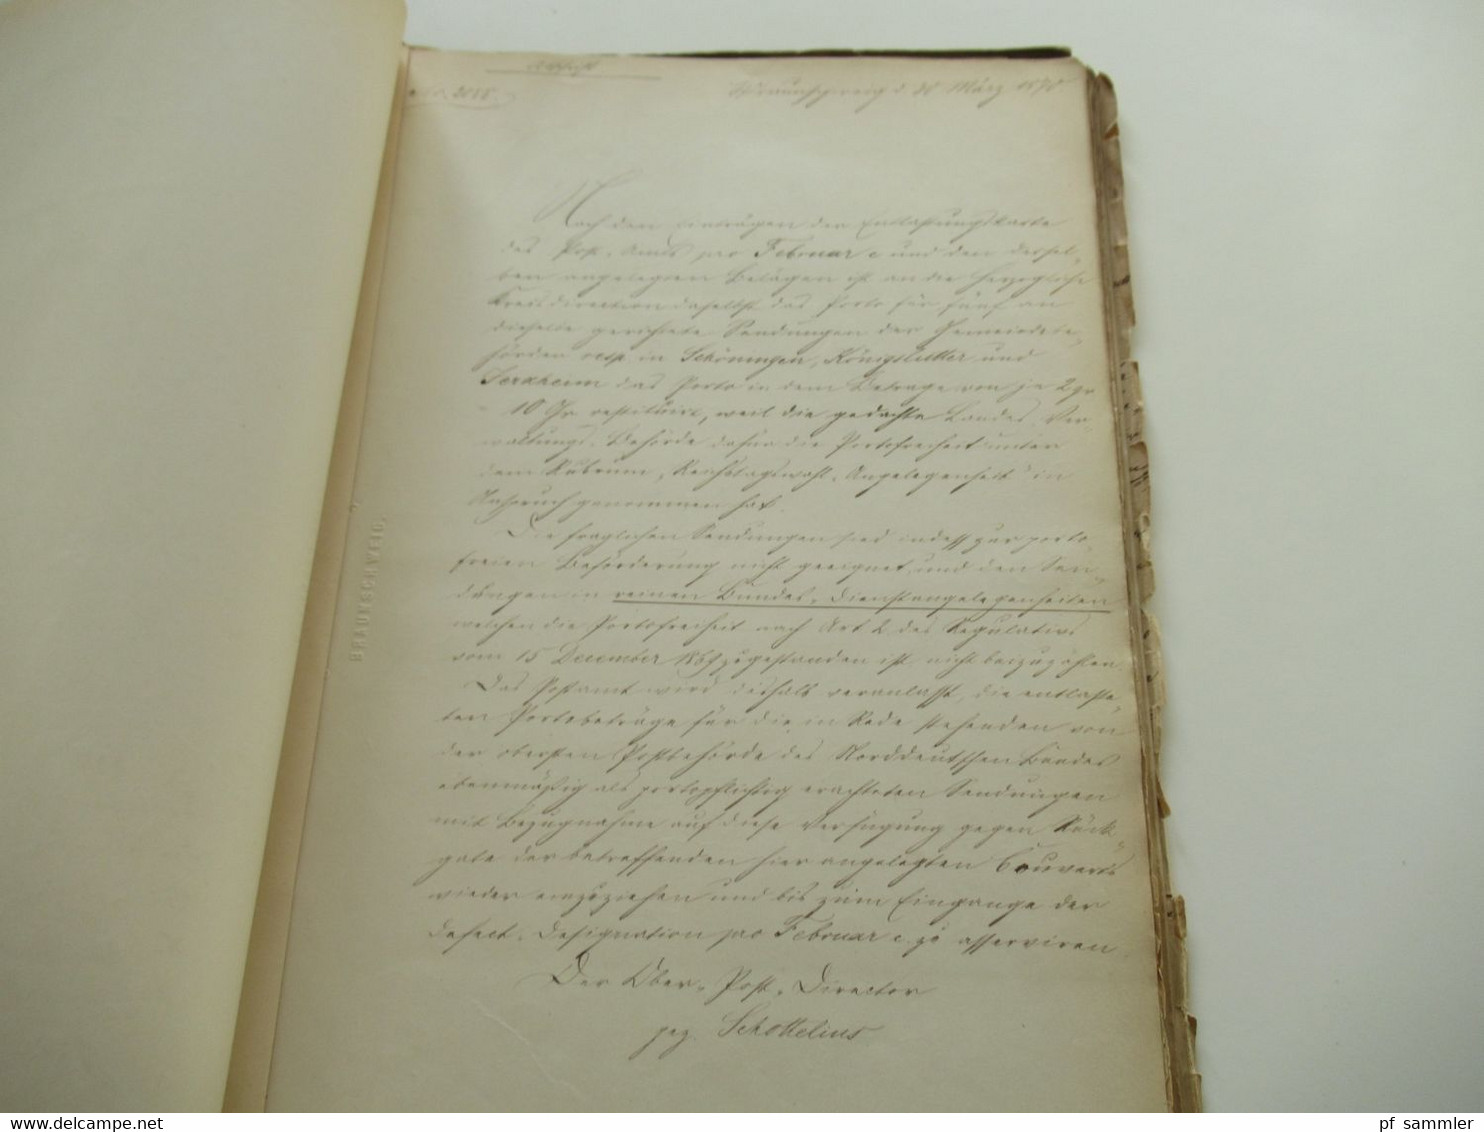 Abschrift
No. 2055.
Braunschweig d 20 März 1870
Nach den Einträgen der Entlastungskarte
des Post-Amts pro Februar c und den densel-
ben angelegten Belägen ist an die Herzogliche
Kreisdirection daselbst das Porto für fünf an
dieselbe gerichtete Sendungen der Gemeindebe-
hörden resp. in Schöningen, Königslutter und
Jerxheim das Porto in dem Betrage von je 2 gr
10 Gr. restituirt, weil die gedachte Landes-Ver-
waltungs-Behörde dafür die Portofreiheit unter
dem Rubrum „Reichstagswahl-Angelegenheit" in
Anspruch genommen hat.
Die fraglichen Sendungen sind indeß zur porto-
freien Beförderung nicht geeignet und den Sen-
dungen in reinen Bundes-Dienstangelegenheiten
welchen die Portofreiheit nach Art. 2 des Regulativs
vom 15 December 1869 zugestanden ist, nicht beizuzählen.
Das Postamt wird deshalb veranlaßt, die entlaste-
ten Portobeträge für die in Rede stehenden von
der obersten Postbehörde des Norddeutschen Bundes
ebenmäßig als portopflichtig erachteten Sendungen
mit Bezugnahme auf diese Verfügung gegen Rück-
gabe der betreffenden hier angelegten Couverts
wieder einzuziehen und bis zum Eingange der
Defect-Designation pro Februar c. zu asserviren.
Der Ober-Post-Director
gez. Schottelius
BRAUNSCHWEIG.
pf sammler
www.delcampe.net